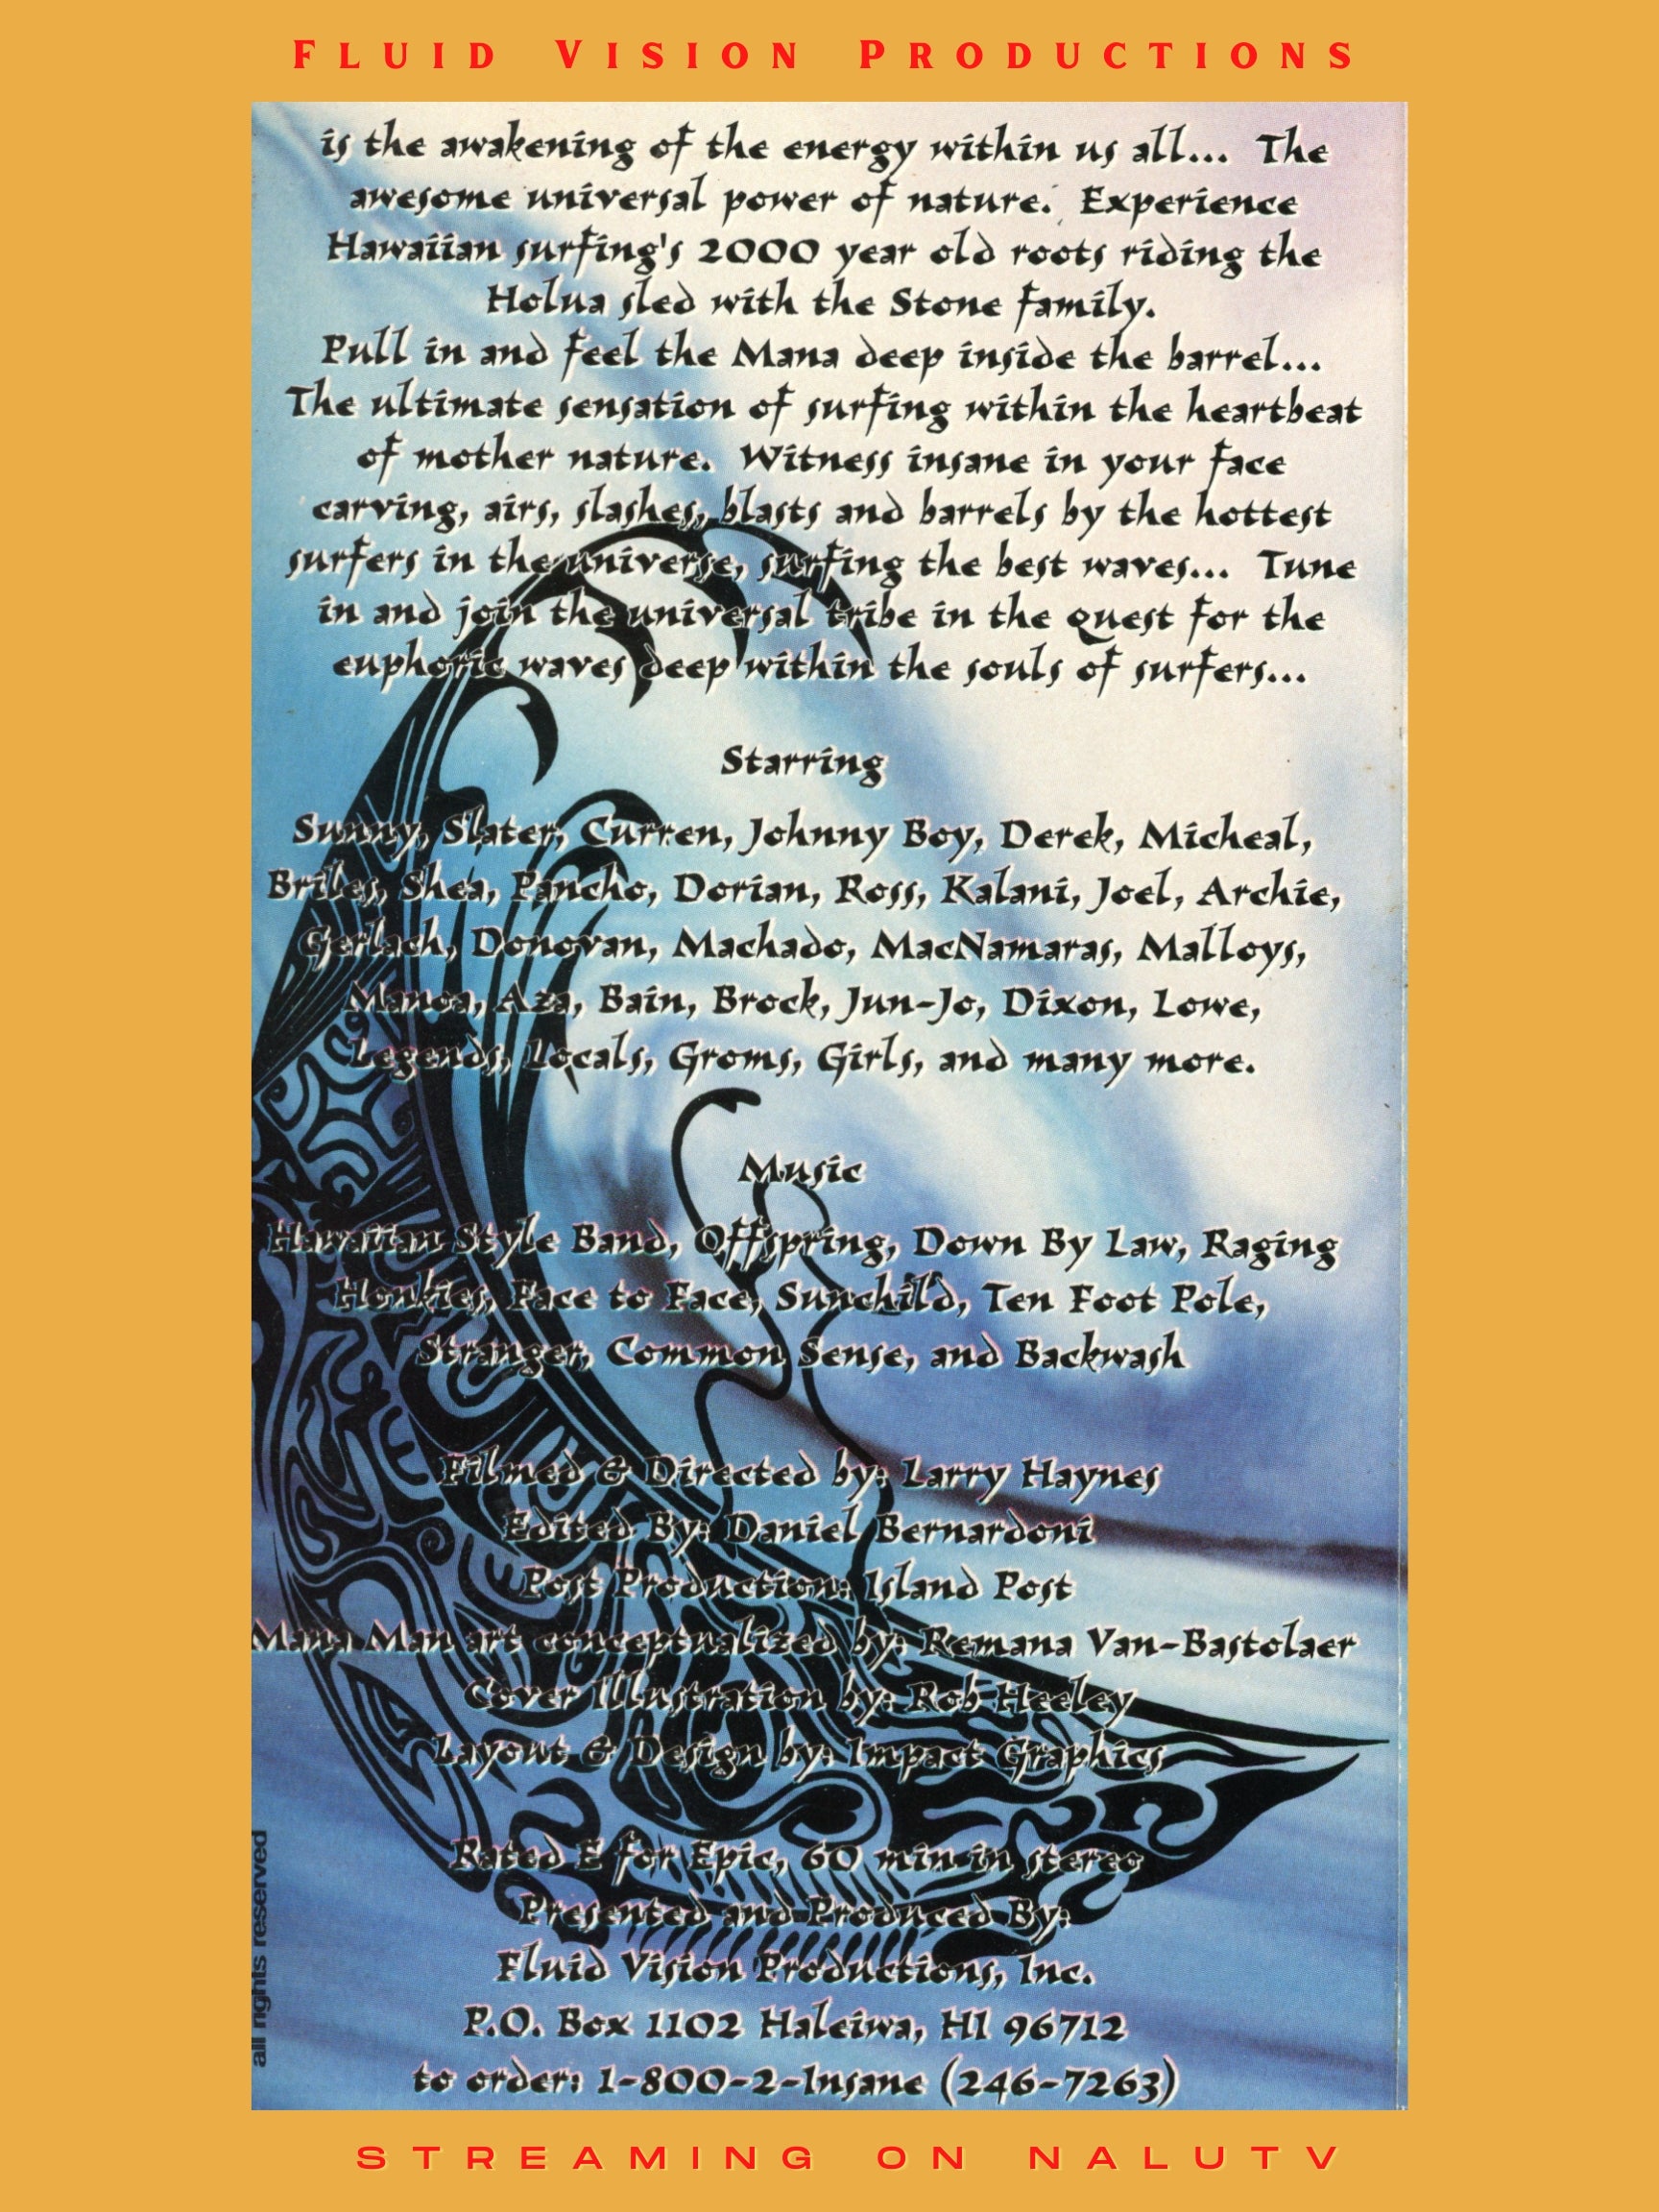 FLUID VISION PRODUCTIONS
is the awakening of the energy within us all... The
awesome universal power of nature. Experience
Hawaiian surfing's 2000 year old roots riding the
Holua sled with the Stone family.
Pull in and feel the Mana deep inside the barrel...
The ultimate sensation of surfing within the heartbeat
of mother nature. Witness insane in your face
carving, airs, slashes, blasts and barrels by the hottest
surfers in the universe, surfing the best waves... Tune
in and join the universal tribe in the quest for the
euphoric waves deep within the souls of surfers...
Starring
Sunny, Slater, Curren, Johnny Boy, Derek, Micheal,
Briles, Shea, Pancho, Dorian, Ross, Kalani, Joel, Archie,
Gerlach, Donovan, Machado, MacNamaras, Malloys,
Manoa, Aza, Bain, Brock, Jun-Jo, Dixon, Lowe,
Legends, Locals, Groms, Girls, and many more.
Music
Hawaiian Style Band, Offspring, Down By Law, Raging
Honkies, Face to Face, Sunchild, Ten Foot Pole,
Stranger, Common Sense, and Backwash
Filmed & Directed by: Larry Haynes
Edited By: Daniel Bernardoni
Post Production: Island Post
Mana Man art conceptualized by: Remana Van-Bastolaer
Cover Illustration by: Rob Heeley
Layout & Design by: Impact Graphics
Rated E for Epic, 60 min in stereo
Presented and Produced By:
Fluid Vision Productions, Inc.
P.O. Box 1102 Haleiwa, HI 96712
to order: 1-800-2-Insane (246-7263)
all rights reserved
STREAMING ON NALUTV